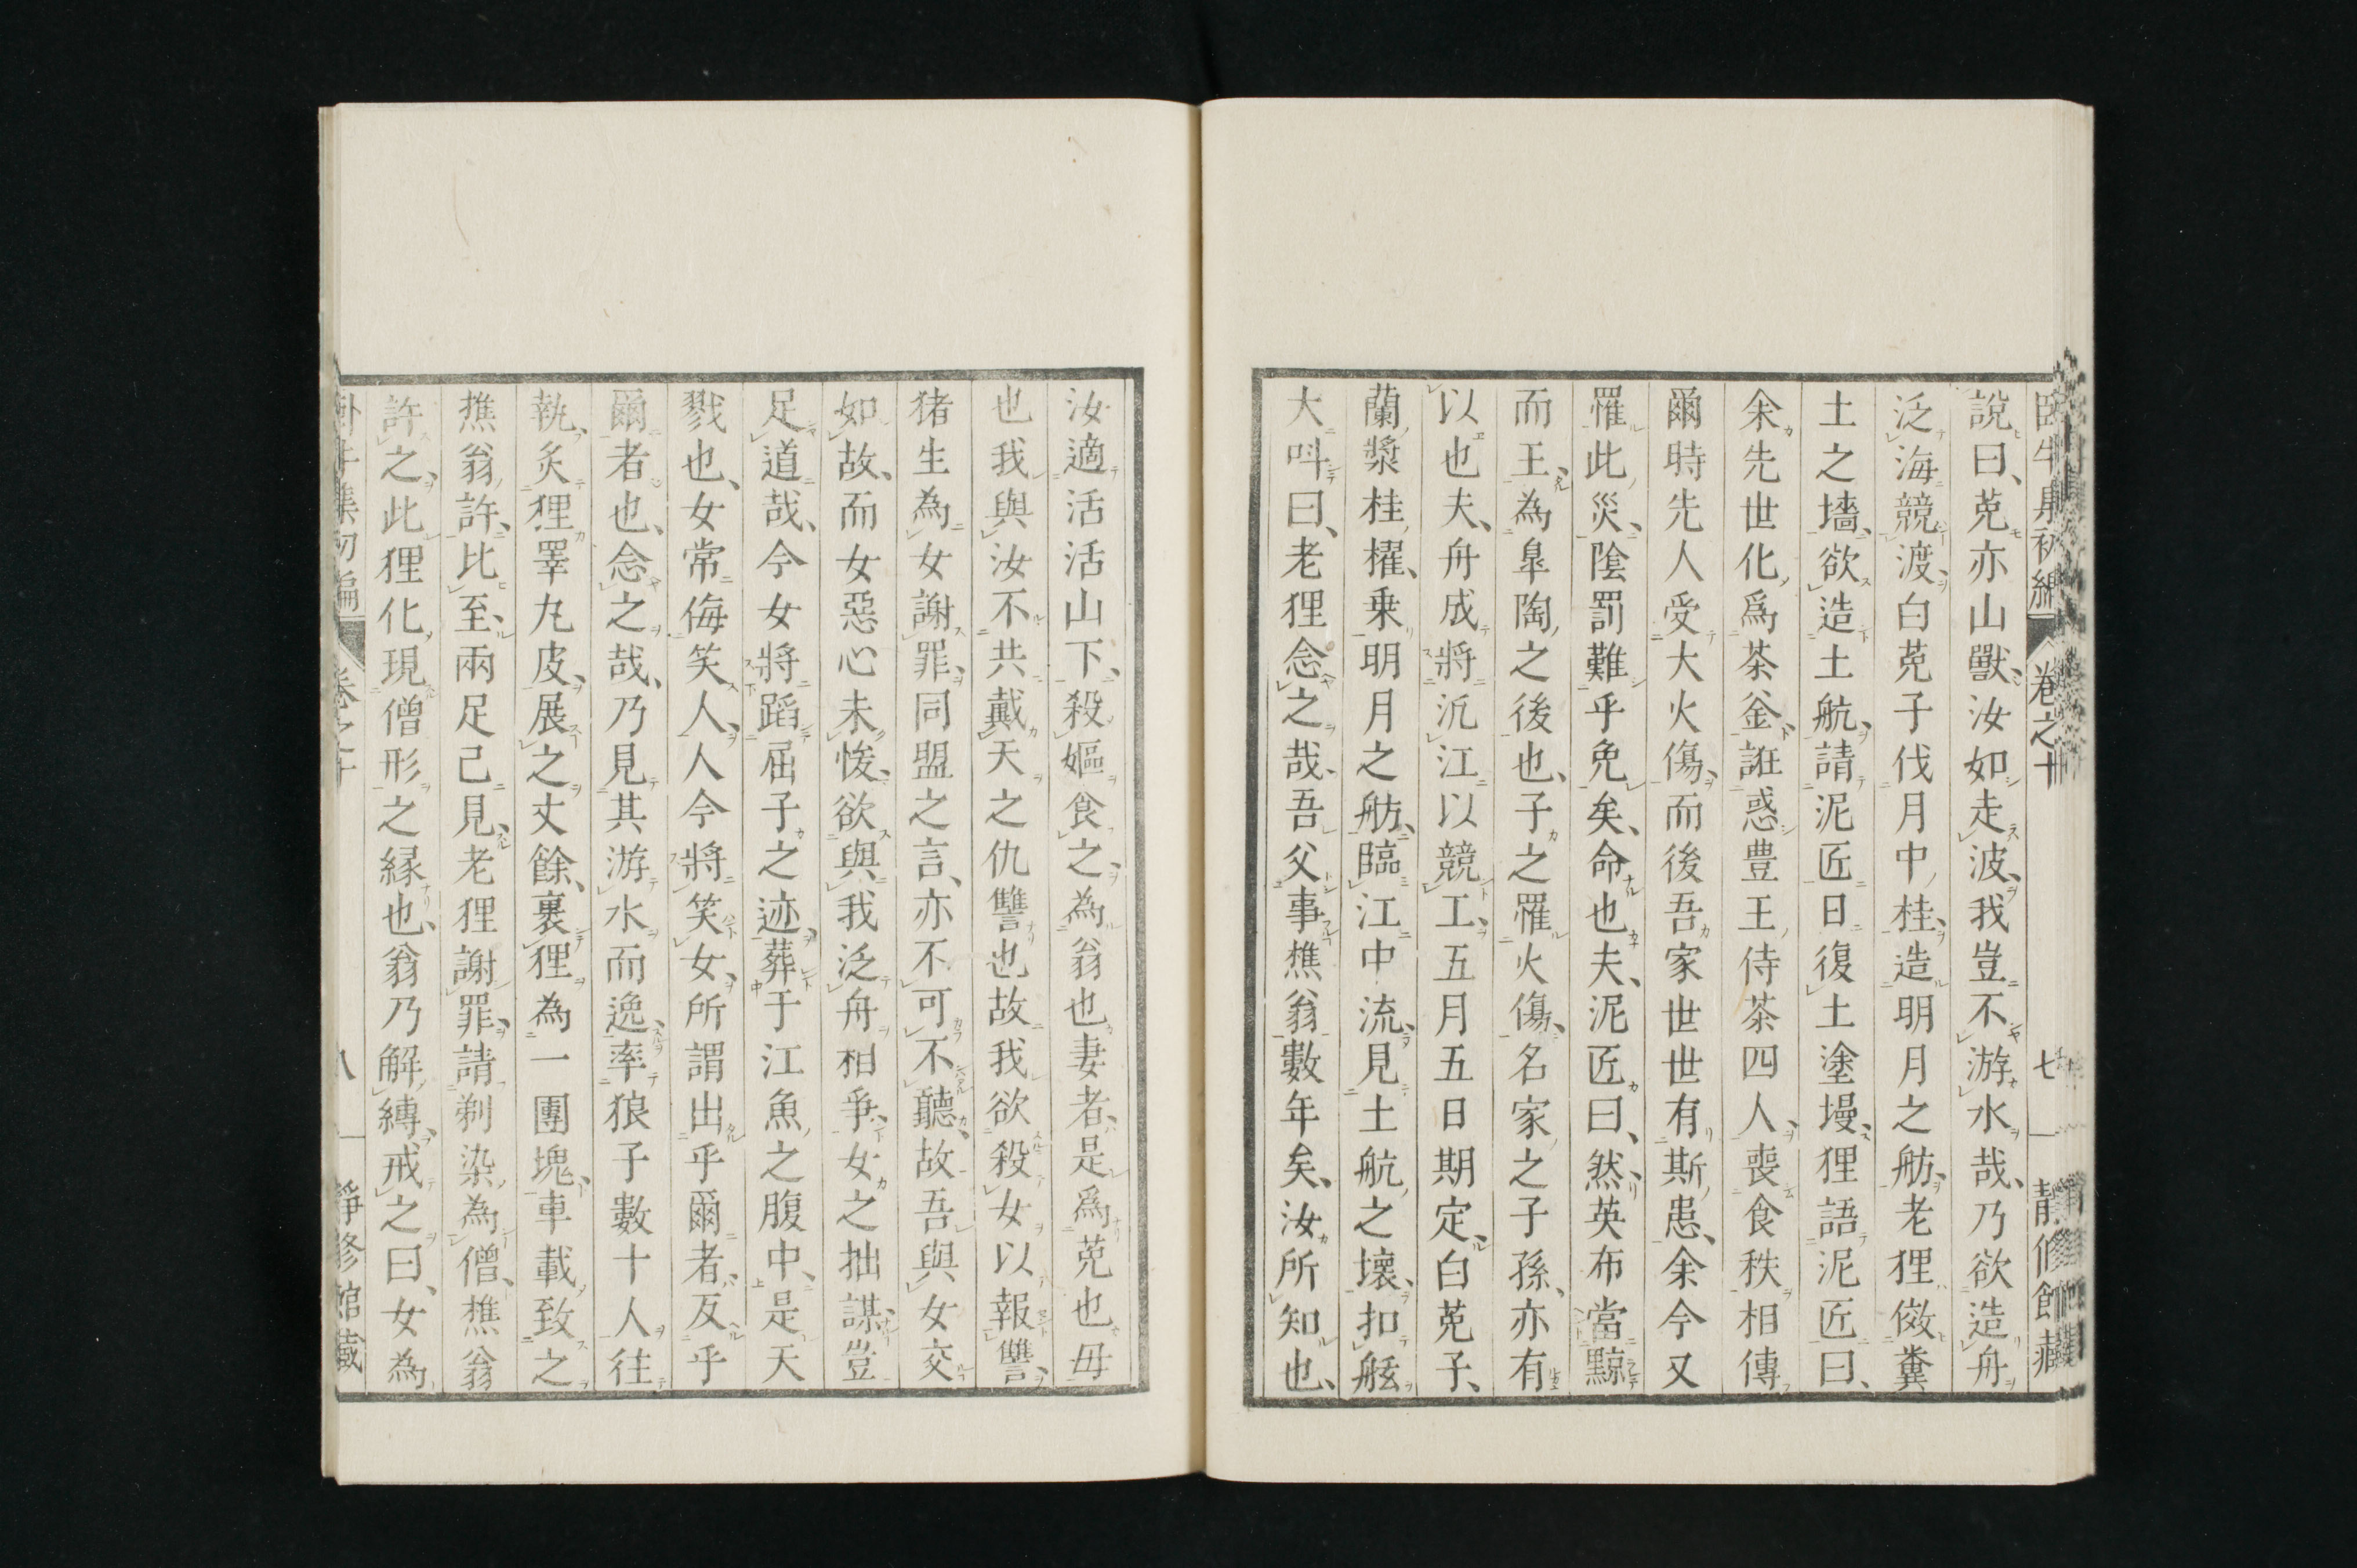 說曰、兎亦山獸、汝如走波、我豈不游水哉、乃欲造舟
泛海競渡、白兎子伐月中桂、造明月之舫、老狸倣糞
土之墻、欲造土航、請泥匠日復土塗墁、狸語泥匠曰、
余先世化爲茶釜、誑惑豊王侍茶四人、喪食秩相傳
爾時先人受大火傷、而後吾家世世有斯患、余今又
罹此災、陰罰難乎免矣、命也夫、泥匠曰、然英布當黥
而王、為皐陶之後也、子之罹火傷、名家之子孫、亦有
以也夫、舟成將沉江以競工、五月五日期定、白兎子、
蘭槳桂櫂、乗明月之舫、臨江中流、見土航之壊、扣舷
大呌曰、老狸念之哉、吾父事樵翁數年矣、汝所知也、
汝適活活山下、殺嫗食之、為翁也妻者、是爲兎也母
也我與汝不共戴天之仇讐也故我欲殺女以報讐、
猪生為女謝罪、同盟之言、亦不可不聽、故吾與女交
如故、而女惡心未悛、欲與我泛舟相爭、女之拙謀、豈
足道哉、今女將蹈屈子之迹、葬于江魚之腹中、是天
戮也、女常侮笑人、人今將笑女、所謂出乎爾者、反乎
爾者也、念之哉、乃見其游水而逸、率狼子數十人往
執、炙狸睪丸皮、展之丈餘、裹狸為一團塊、車載致之
樵翁許、比至、兩足已見、老狸謝罪、請剃染為僧、樵翁
許之、此狸化現僧形之縁也、翁乃解縛、戒之曰、女為